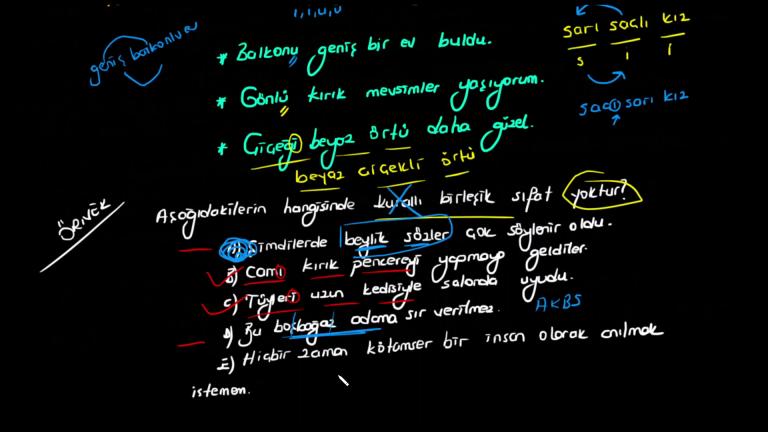 ı, i, u, ü
sarı saçlı kız
s i i
geniş balkonlu ev
* Balkonu geniş bir ev buldu.
saçı sarı kız
* Gönlü kırık mevsimler yaşıyorum.
* Çiçeği beyaz örtü daha güzel.
beyaz çiçekli örtü
ÖRNEK
Aşağıdakilerin hangisinde kurallı birleşik sıfat yoktur?
A) Şimdilerde beylik sözler çok söylenir oldu.
B) Camı kırık pencereyi yapmaya geldiler.
C) Tüyleri uzun kedisiyle salonda uyudu.
AKBS
D) Bu boşboğaz adama sır verilmez.
E) Hiçbir zaman kötümser bir insan olarak anılmak
istemem.